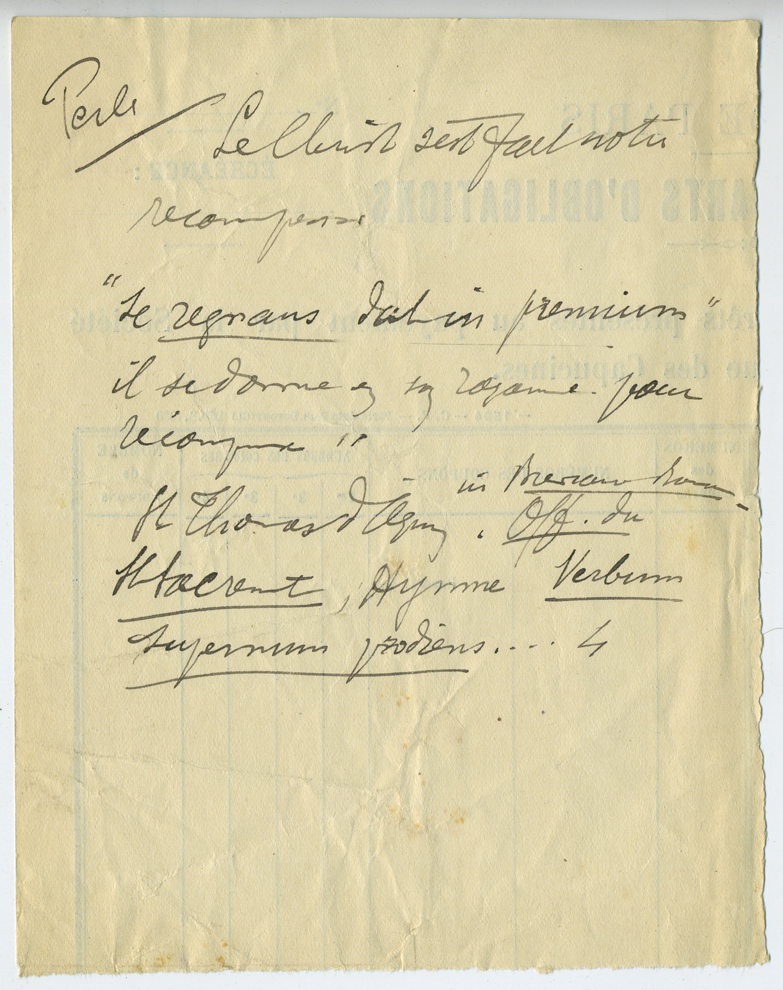 Perle
Le Christ s'est fait notre
recompense
"Se regnans dat in premium"
il se donne en son royaume pour
récompense "
in Breviar. Rom.
St Thomas d'Aquin, Off. du
St Sacremt, Hymne Verbum
supernum prodiens.... 4
DE PARIS
ÉCHÉANCE :
ARTS D'OBLIGATIONS
rue des Capucines.